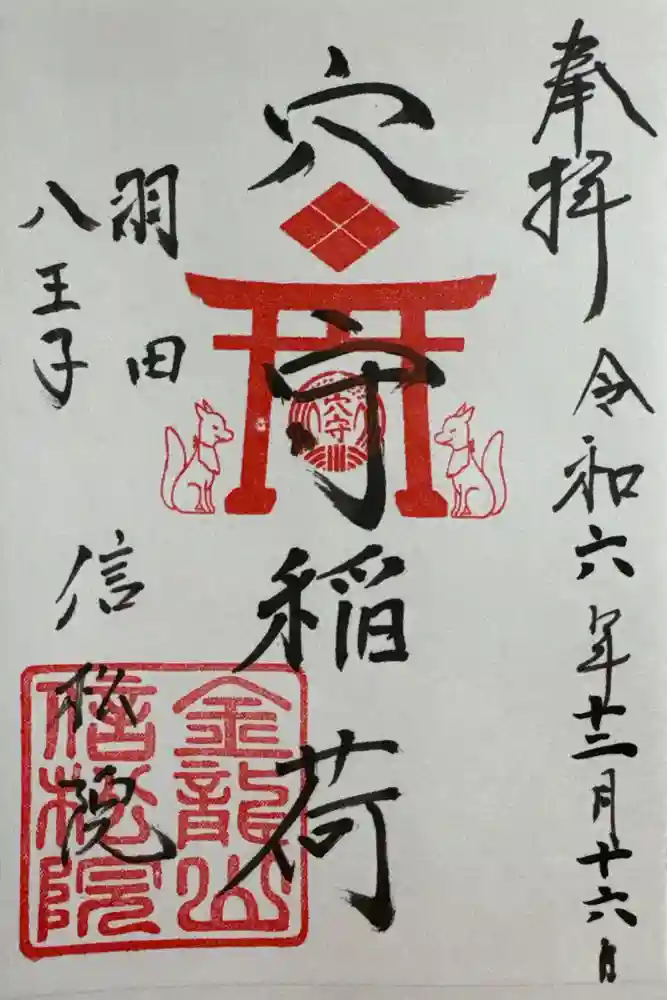 奉拝
令和六年十二月十六日
穴守稲荷
羽田
八王子
信松院
穴守
金龍山
信松院